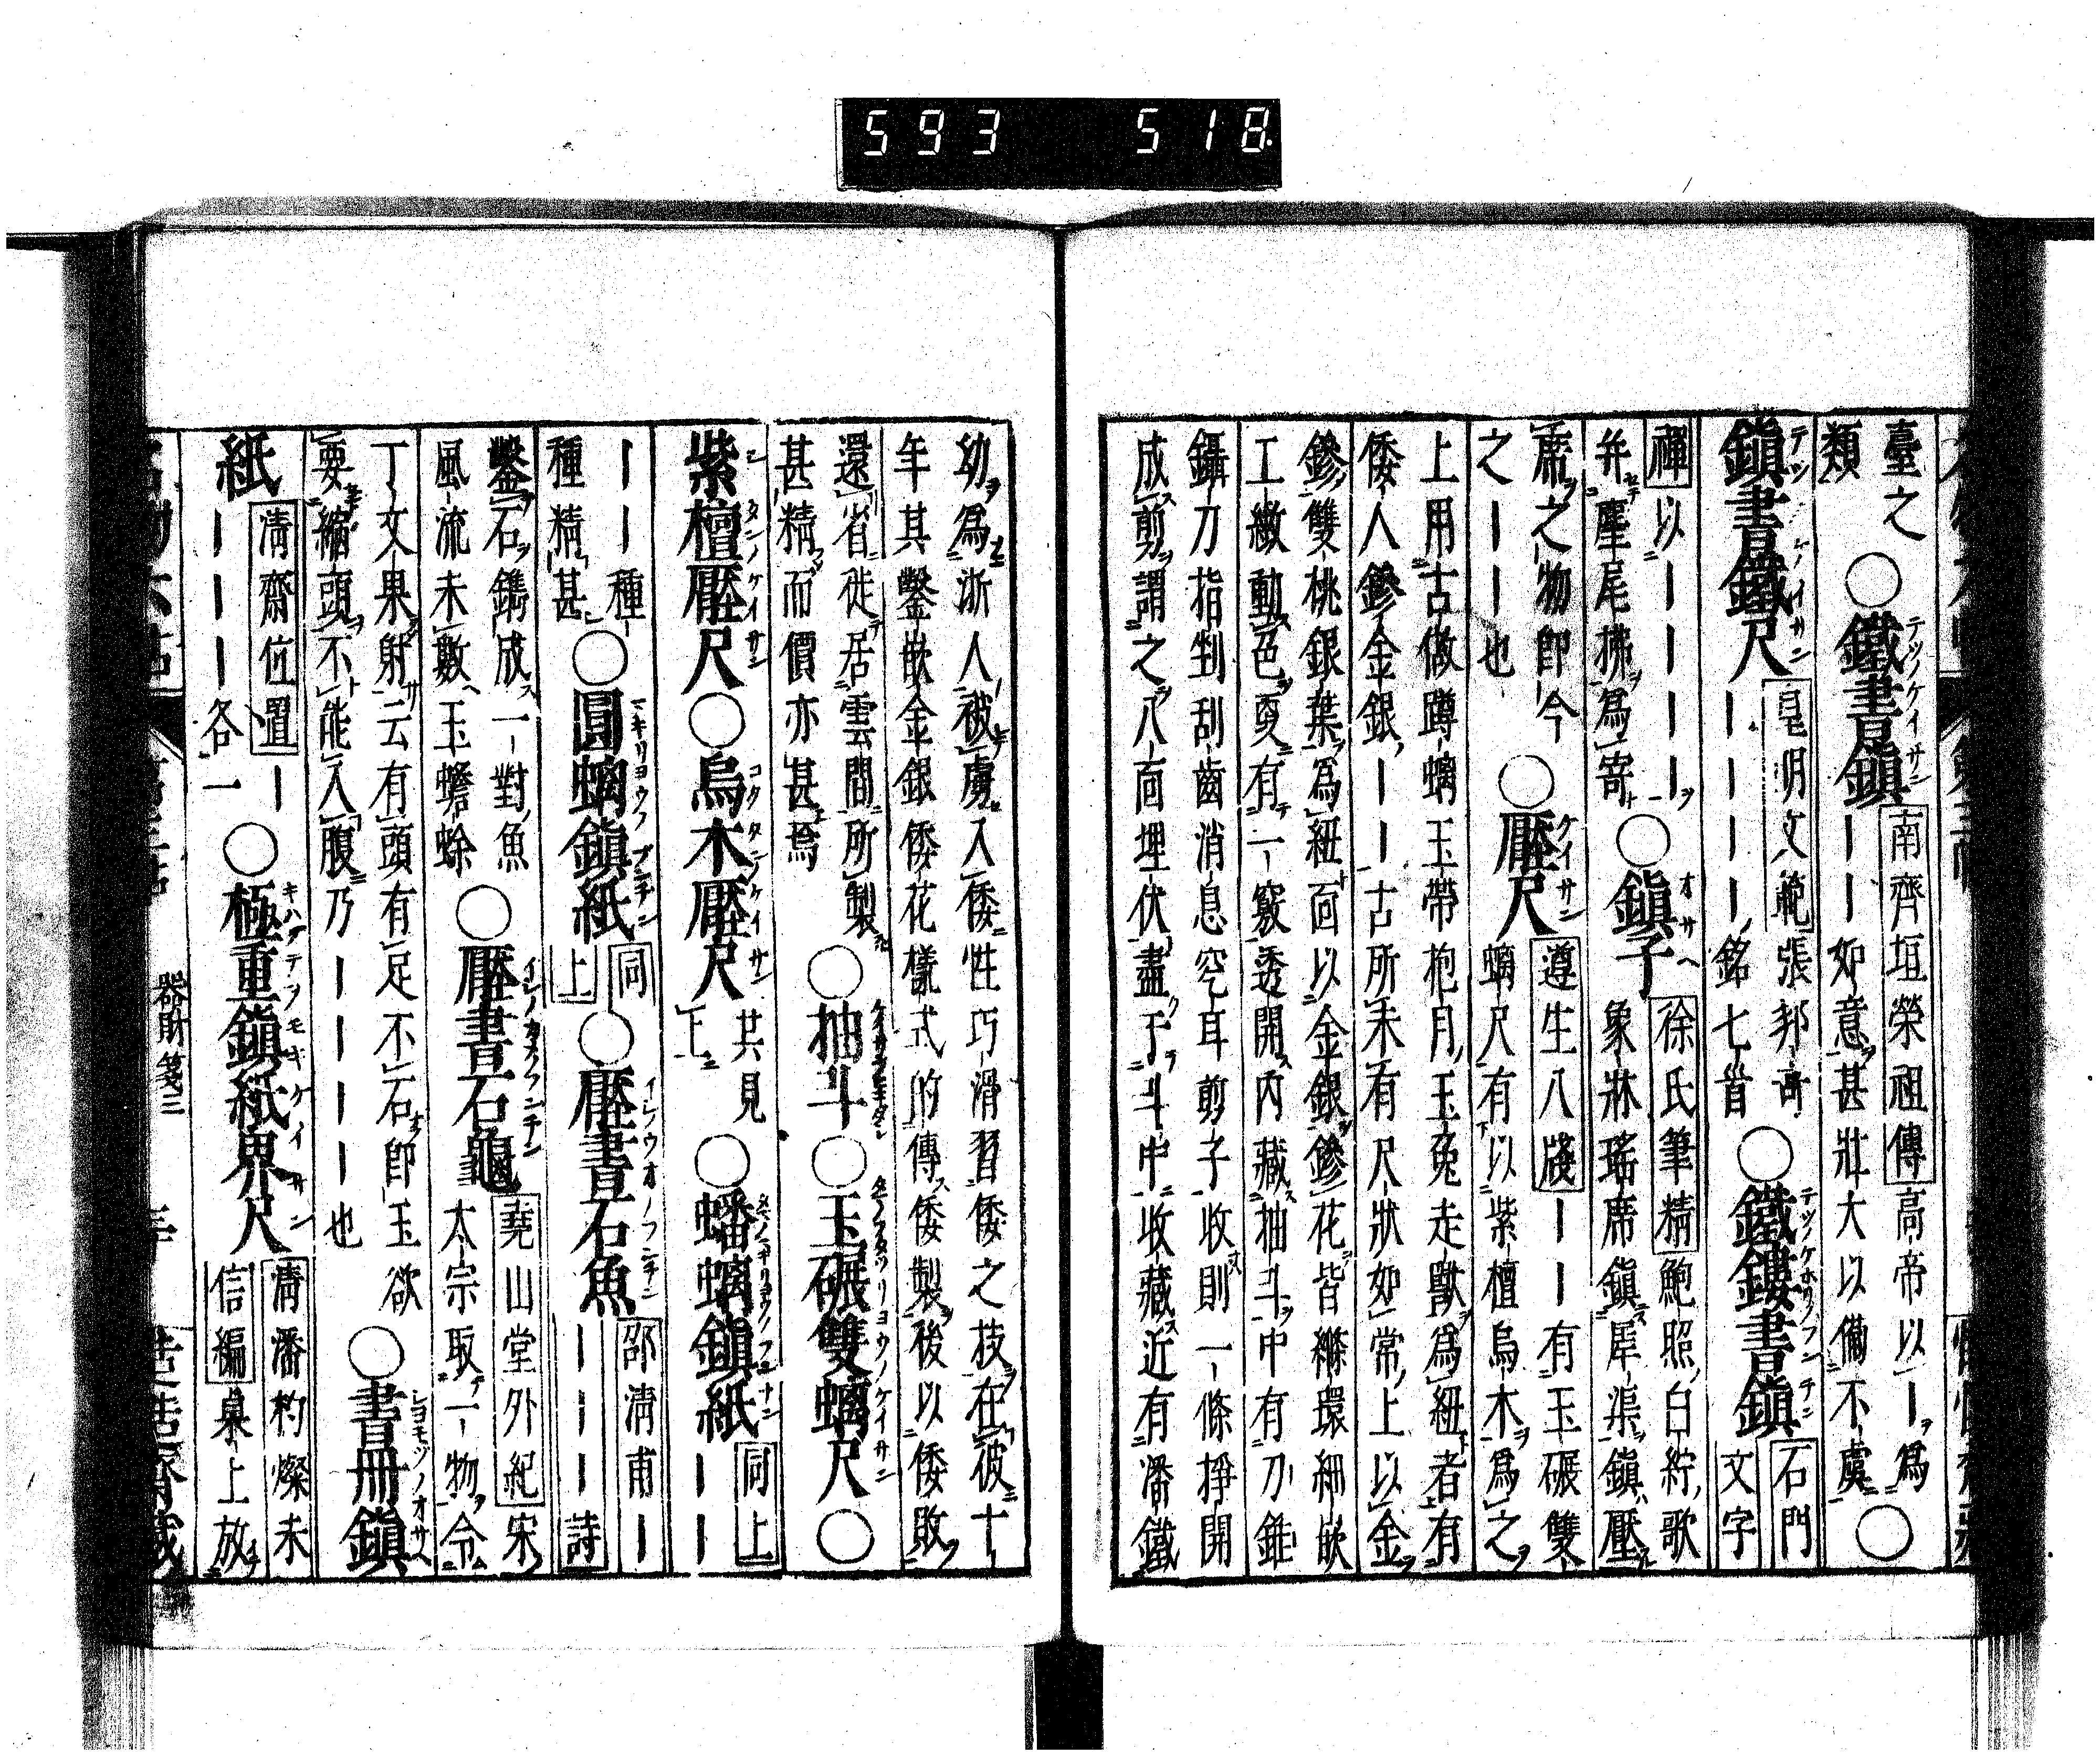 593 518
臺之
類
○鐵書鎮
テツノケイサン
南齊垣榮祖傳高帝以ーヲ為
ーー如意甚壯大以備不虞
○
鎮書鐵尺
皇明文範張邦奇
ーーーー銘七首
○鐵鏤書鎮
石門
文字
禪以ーーーーヲ
并麈尾拂為寄
○鎮子
オサヘ
徐氏筆精鮑照白紵歌
象牀瑤席鎮犀渠鎮壓
席之物即今
之ーーー也
○壓尺
ケイサン
遵生八牋ーーー有玉碾雙
螭尺有以紫檀烏木為之
上用古做蹲螭玉帶枹月玉兔走獸為紐者有
倭人鏒金銀ーー古所未有尺狀如常上以金
鏒雙桃銀葉為紐面以金銀鏒花皆絛環細嵌
工緻動色更有一竅透開內藏抽斗中有刀錐
鑷刀指剉刮齒消息穵耳剪子收則一條掙開
成剪謂之八面埋伏盡于斗中收藏近有潘鐵
幼為浙人被虜入倭性巧滑習倭之技在彼十
年其鑿嵌金銀倭花樣式的傳倭製後以倭敗
還省徙居雲間所製
甚精而價亦甚焉
○抽斗
○玉碾雙螭尺
○
紫檀壓尺
○烏木壓尺
共見
上
○蟠螭鎮紙
同上
ーー
ーー種
種精甚
○圓螭鎮紙
同上
○壓書石魚
邵清甫ー
ーーーー詩
鑿石鐫成一對魚
風流未數玉蟾蜍
○壓書石龜
堯山堂外紀宋
太宗取一物令
丁文果射云有頭有足不石即玉欲
要縮頭不能入腹乃ーーーー也
○書冊鎮
紙
清齋位置ー
ーーーー各一
○極重鎮紙界尺
清潘杓燦未
信編桌上放
器財箋三